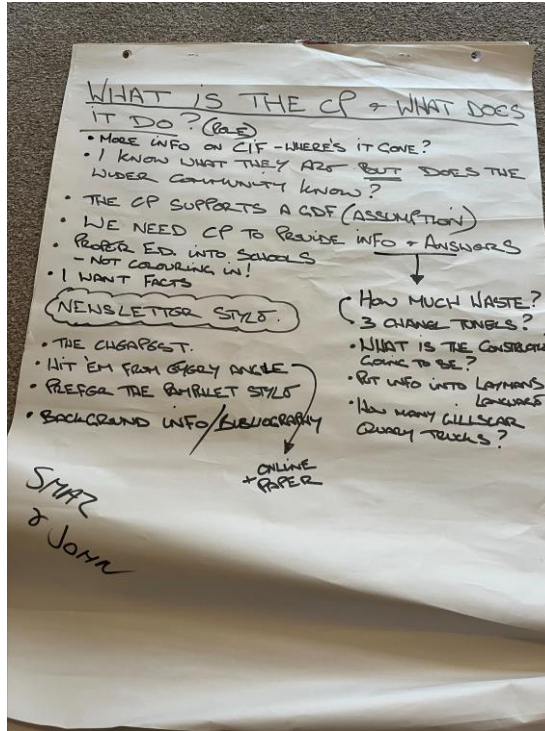 WHAT IS THE CP & WHAT DOES
IT DO? (ROLE)
• MORE INFO ON CIF - WHERE'S IT GONE?
• I KNOW WHAT THEY ARE BUT DOES THE
WIDER COMMUNITY KNOW?
• THE CP SUPPORTS A GDF (ASSUMPTION)
• WE NEED CP TO PROVIDE INFO & ANSWERS
• PROPER ED. INTO SCHOOLS
- NOT COLOURING IN!
• I WANT FACTS
NEWSLETTER STYLE.
• THE CHEAPEST.
• HIT 'EM FROM EVERY ANGLE
• PREFER THE PAMPHLET STYLE
• BACKGROUND INFO/BIBLIOGRAPHY
ONLINE
+ PAPER
• HOW MUCH WASTE?
• 3 CHANEL TUNELS?
• WHAT IS THE CONSTRUCTI
GOING TO BE?
• PUT INFO INTO LAYMANS
LANGUAGE
• HOW MANY GILLSCAR
QUARY TRUCKS?
& JOHN